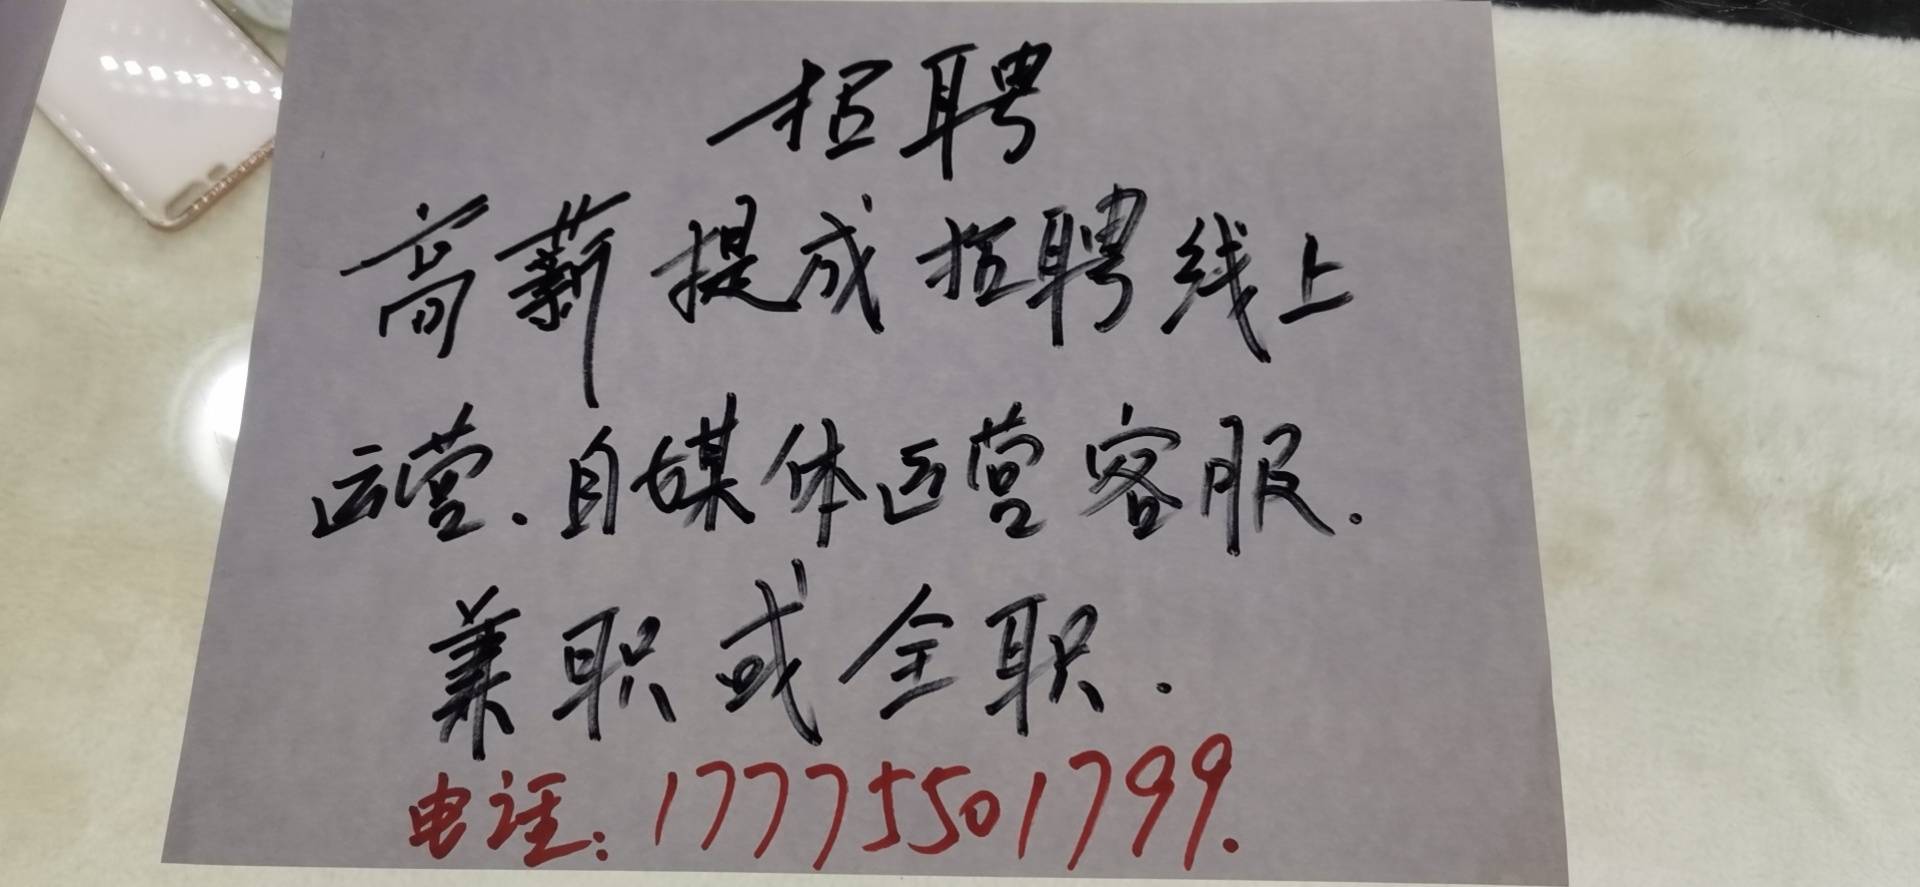 招聘
高薪提成招聘线上
运营.自媒体运营客服.
兼职或全职.
电话:17775501799.